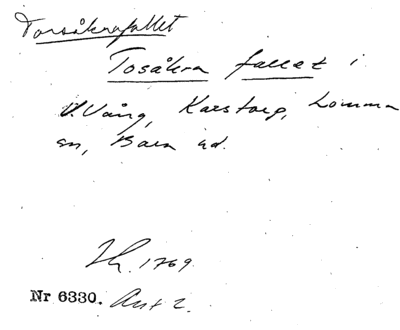 Torsåkrafallet
Tosåkra fallet i
V. Vång, Karstorp, Lomma
sn, Bara hd.
1769.
Nr 6330. Akt 2.